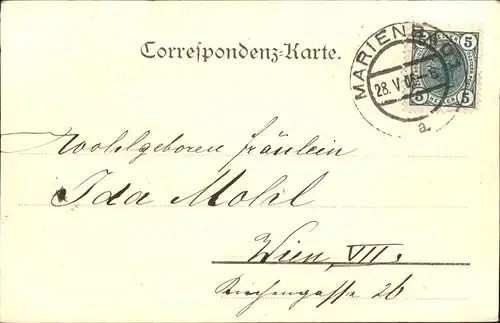 Correspondenz-Karte.
MARIENBAD
28.V.0
a
5 5
5 5
Wohlgeboren Fräulein
Ida Mohl
Wien, VII.
Kirchengasse 26